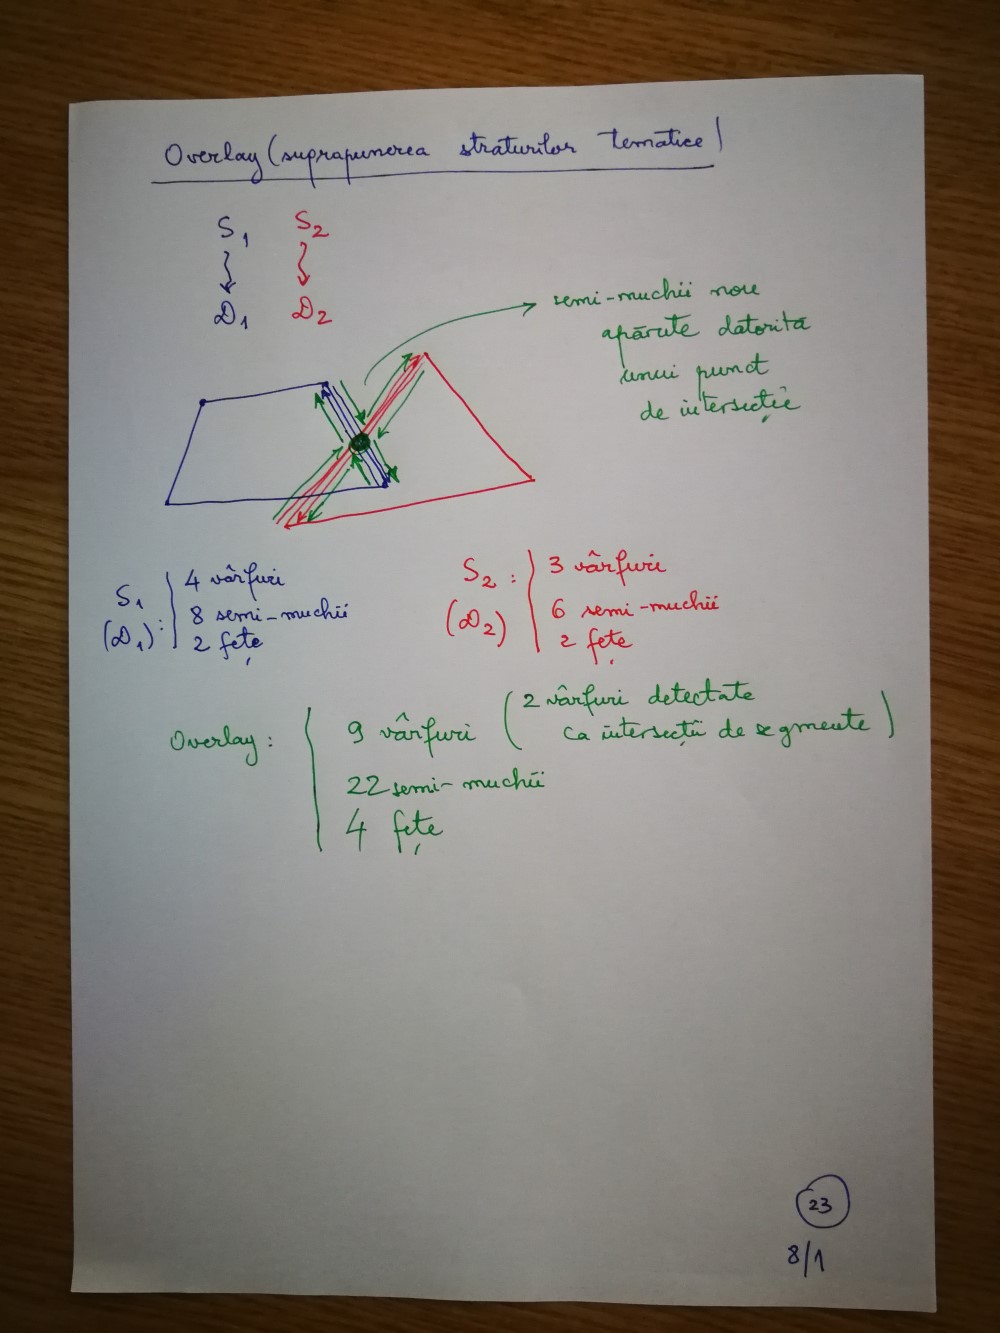 Overlay (suprapunerea straturilor tematice)
S1 S2
D1 D2
semi-muchii noi
apărute datorită
unui punct
de intersecție
S1 (D1): 4 vârfuri
8 semi-muchii
2 fețe
S2 (D2): 3 vârfuri
6 semi-muchii
2 fețe
Overlay: 9 vârfuri (2 vârfuri detectate
ca intersecții de segmente)
22 semi-muchii
4 fețe
23
8/1